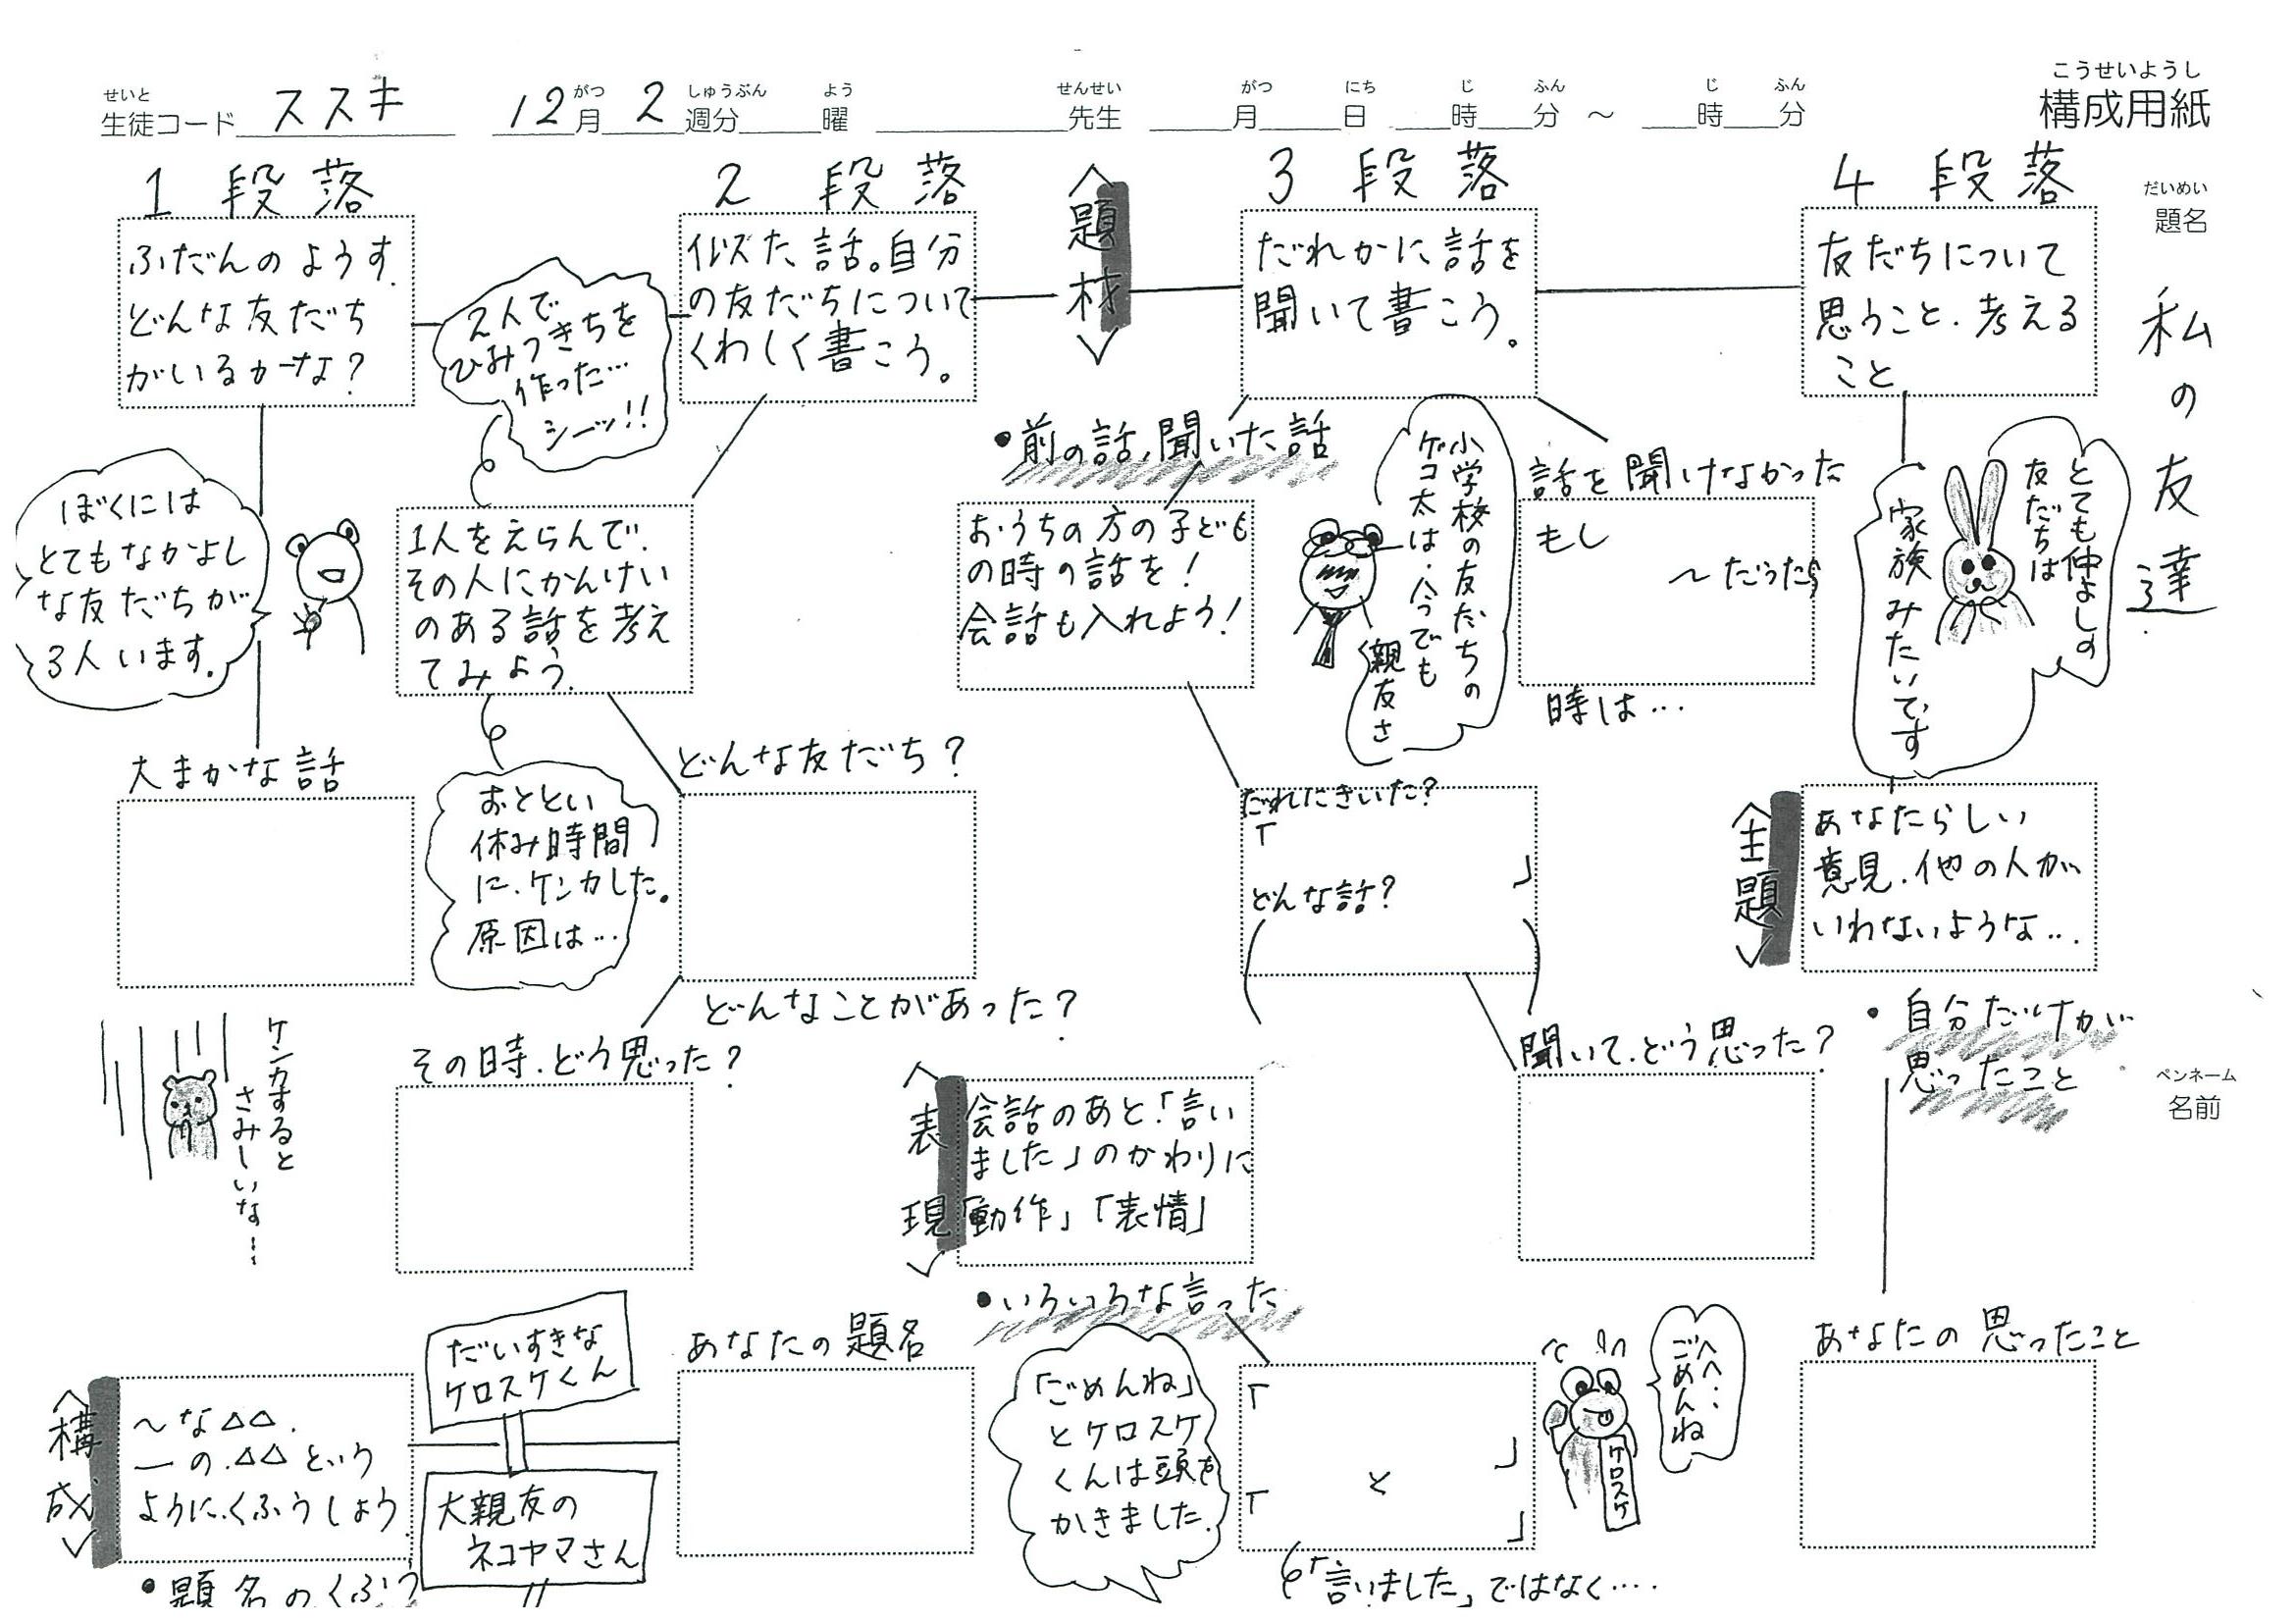 せいと
生徒コード ススキ
がつ しゅうぶん よう せんせい
12月 2週分 曜 先生
がつ にち じ ふん じ ふん
月 日 時 分 ～ 時 分
こうせいようし
構成用紙
だいめい
題名
私の友達
ペンネーム
名前
1段落
ふだんのようす.
どんな友だち
がいるかな？
ぼくには
とてもなかよし
な友だちが
3人います。
大まかな話
ケンカすると
さみしいな…
〈構成〉
～な△△.
ーの.△△という
ように.くふうしよう.
•題名のくふう
だいすきな
ケロスケくん
大親友の
ネコヤマさん
あなたの題名
2段落
似た話。自分
の友だちについて
くわしく書こう。
2人で
ひみつきちを
作った…
シーッ!!
1人をえらんで.
その人にかんけい
のある話を考え
てみよう.
おととい
休み時間
に.ケンカした。
原因は…
どんな友だち？
どんなことがあった？
その時.どう思った？
〈題材〉
3段落
だれかに話を
聞いて書こう。
•前の話、聞いた話
おうちの方の子ども
の時の話を！
会話も入れよう！
小学校の友だちの
ゲコ太は.今でも
親友さ
話を聞けなかった
もし
～だったら
時は…
だれにきいた？
「
」
どんな話？
聞いて.どう思った？
〈表現〉
会話のあと「言い
ました」のかわりに
「動作」「表情」
•いろいろな言った
「ごめんね」
とケロスケ
くんは頭を
かきました.
「
」
と
「
」
「言いました」ではなく….
へへ…
ごめんね
ケロスケ
4段落
友だちについて
思うこと.考える
こと
とても仲よしの
友だちは
家族みたいです
〈主題〉
あなたらしい
意見.他の人が
いわないような….
•自分だけが
思ったこと
あなたの思ったこと